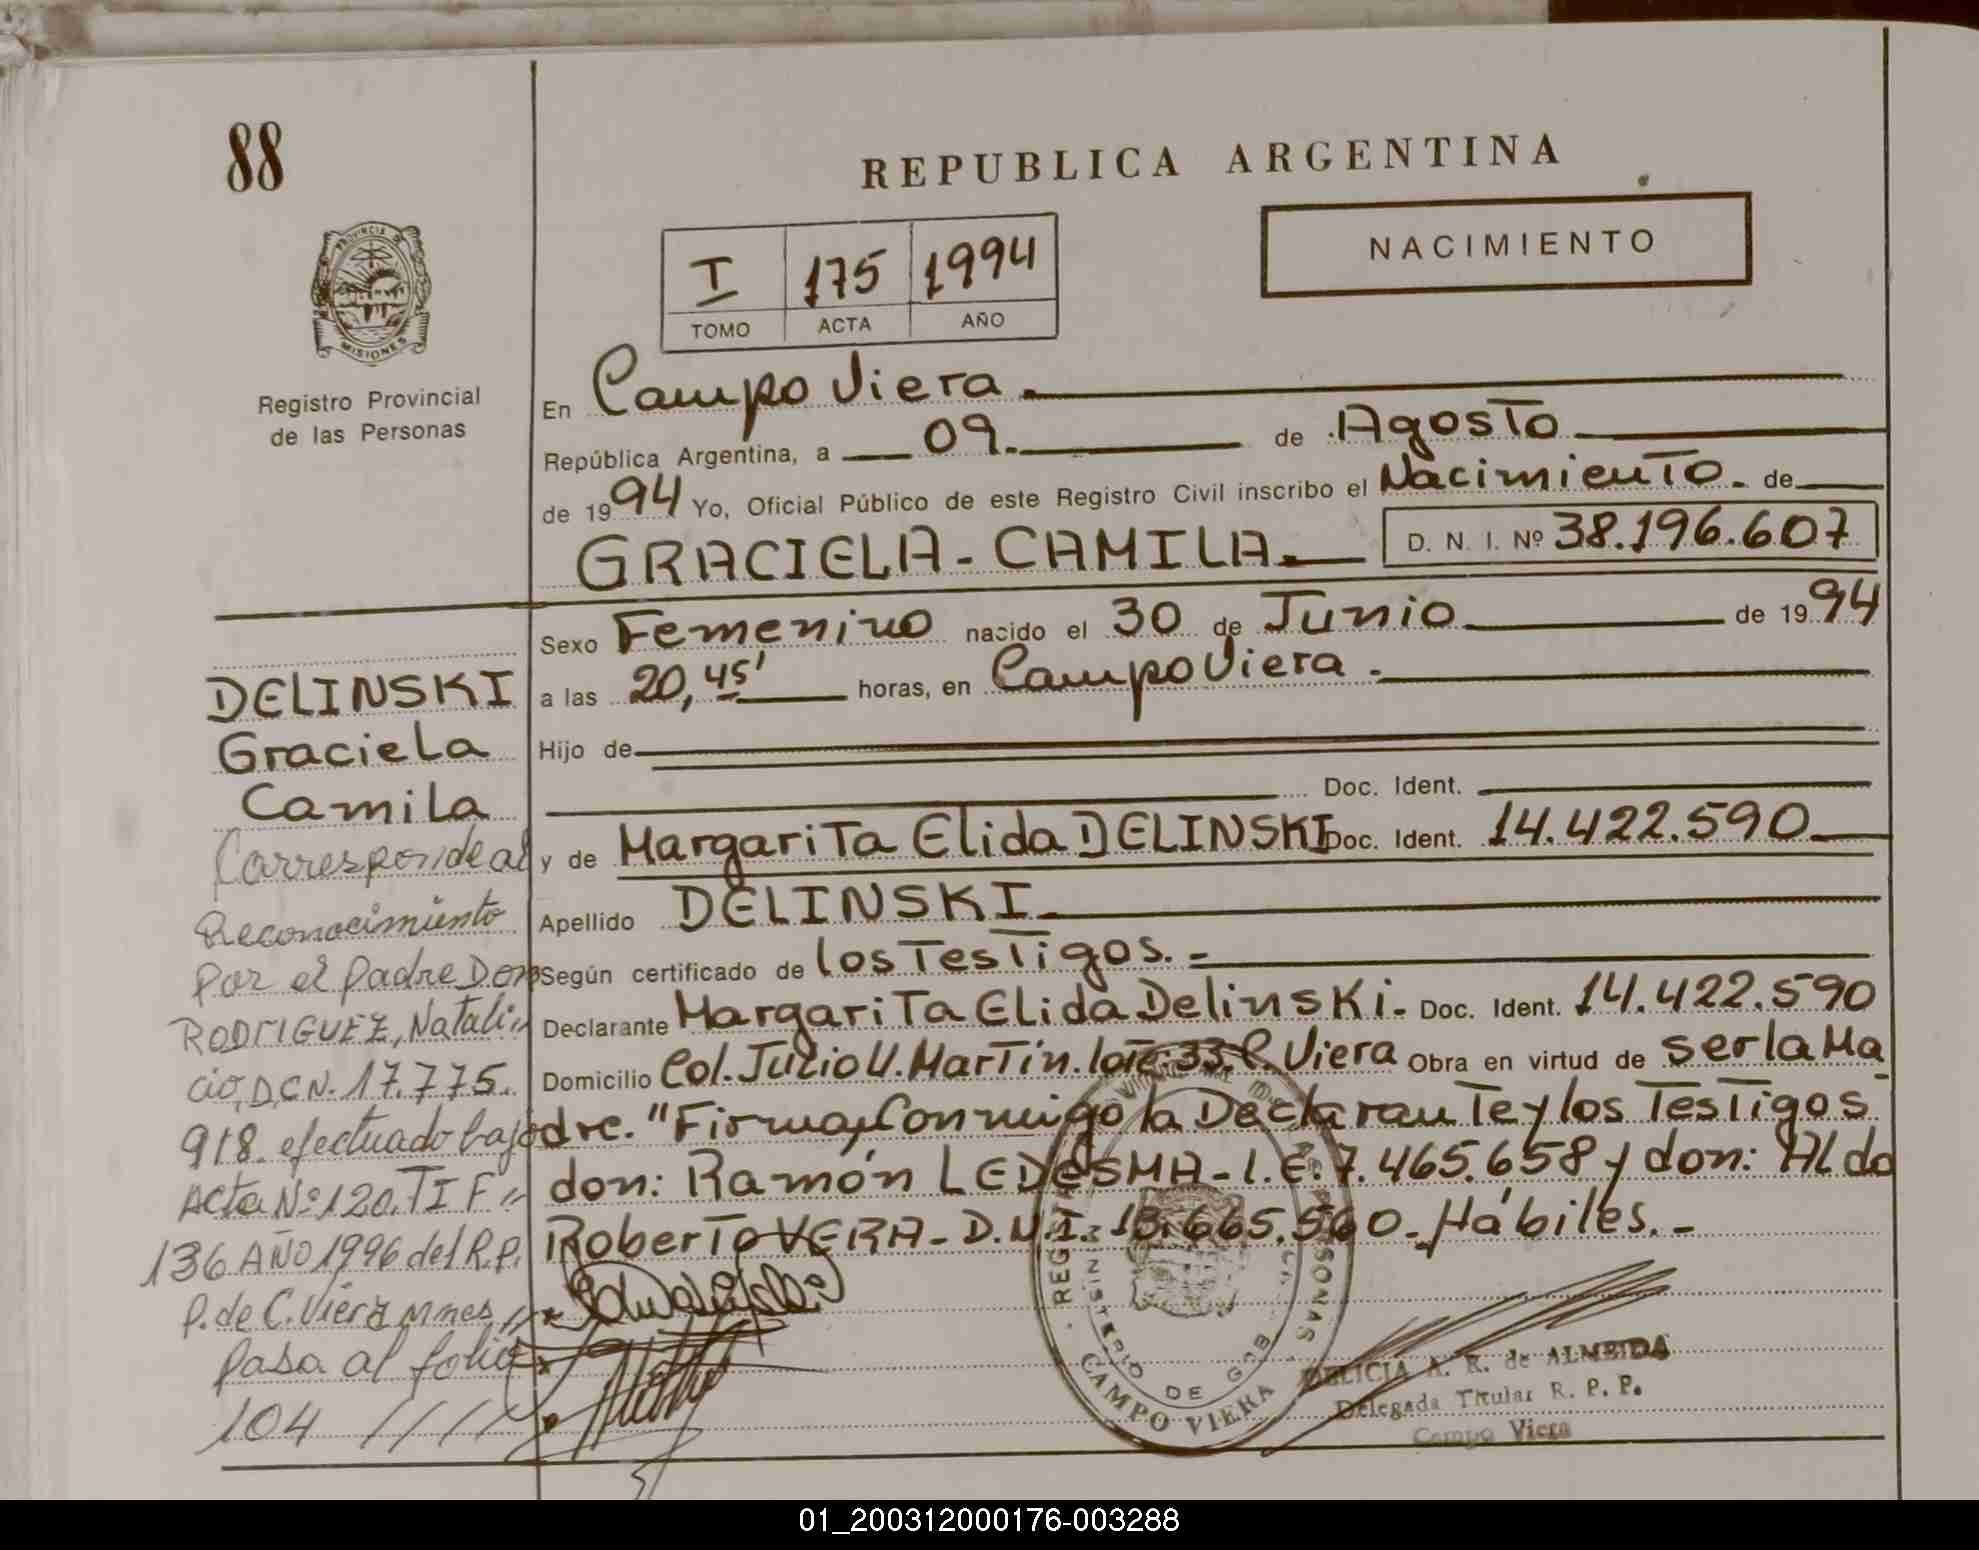 88
REPUBLICA ARGENTINA
NACIMIENTO
I 175 1994
TOMO ACTA AÑO
PROVINCIA DE
MISIONES
Registro Provincial
de las Personas
En Campo Viera.
República Argentina, a 09. de Agosto
de 1994 Yo, Oficial Público de este Registro Civil inscribo el Nacimiento. de
GRACIELA - CAMILA. D. N. I. Nº 38.196.607
Sexo Femenino nacido el 30 de Junio de 1994
a las 20,45' horas, en Campo Viera.
Hijo de
Doc. Ident.
y de Margarita Elida DELINSKI Doc. Ident. 14.422.590
Apellido DELINSKI.
Según certificado de los Testigos. -
Declarante Margarita Elida Delinski. Doc. Ident. 14.422.590
Domicilio Col. Julio U. Martín. lote 33. C. Viera Obra en virtud de ser la Ma
dre. "Firman Conmigo la Declarante y los Testigos
don: Ramón LEDESMA - L.E. 7.465.658 y don: Aldo
Roberto VERA - D.N.I. 13.665.560 - Hábiles. -
DELINSKI
Graciela
Camila
Corresponde al
Reconocimiento
Por el Padre Don
RODRIGUEZ, Natali"
cio, D,C N. 17.775.
918. efectuado bajo
Acta Nº 120. T I F"
136 AÑO 1996 del R.P.
P. de C. Viera Mnes, "
Pasa al folio
104 /////
MINISTERIO DE GOB
CAMPO VIERA
DELICIA A. R. de ALMEIDA
Delegada Titular R. P. P.
Campo Viera
01_200312000176-003288